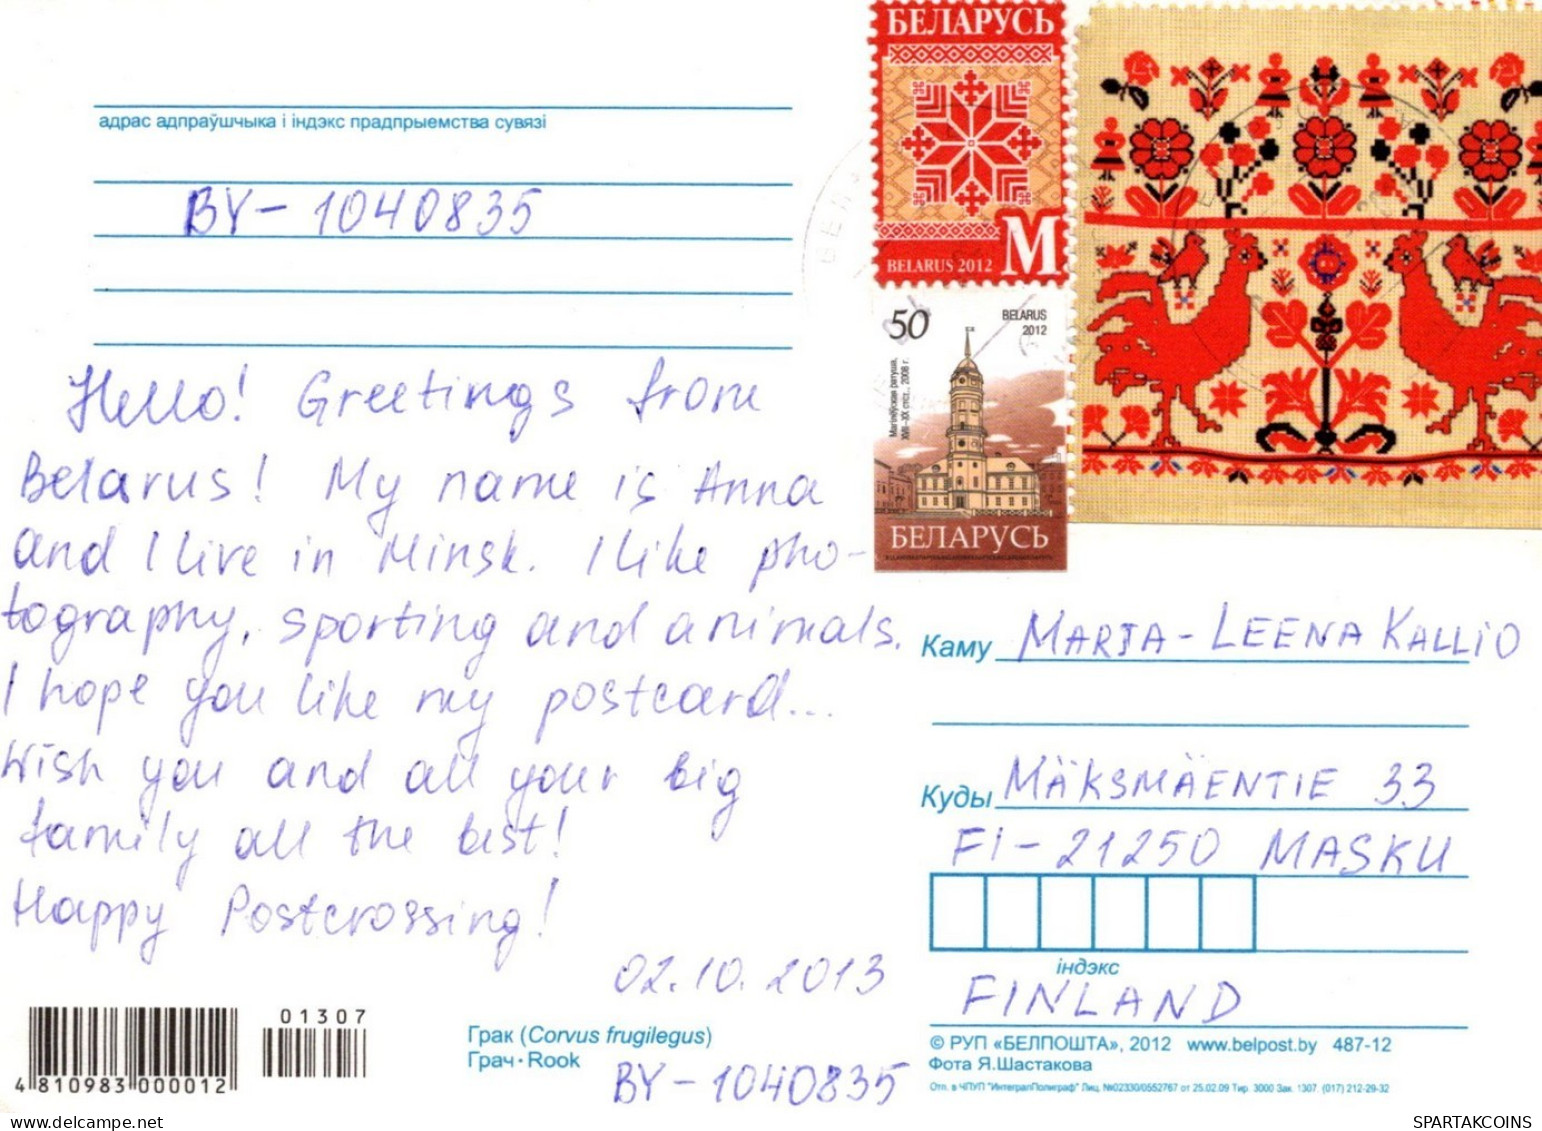 адрас адпраўшчыка і індэкс прадпрыемства сувязі
BY-1040835
Hello! Greetings from
Belarus! My name is Anna
and I live in Minsk. I like pho-
tography, sporting and animals.
I hope you like my postcard...
Wish you and all your big
family all the best!
Happy Postcrossing!
02.10.2013
01307
4 810983 000012
Грак (Corvus frugilegus)
Грач • Rook
BY-1040835
БЕЛАРУСЬ
BELARUS 2012 M
50 BELARUS
2012
Магілёўская ратуша,
XVII–XX стст., 2008 г.
БЕЛАРУСЬ
Каму MARJA-LEENA KALLIO
Куды MÄKSMÄENTIE 33
FI-21250 MASKU
індэкс
FINLAND
© РУП «БЕЛПОШТА», 2012 www.belpost.by 487-12
Фота Я.Шастакова
Отп. в ЧПУП "ИнтегралПолиграф" Лиц. №02330/0552767 от 25.02.09 Тир. 3000 Зак. 1307. (017) 212-29-32
SPARTAKCOINS